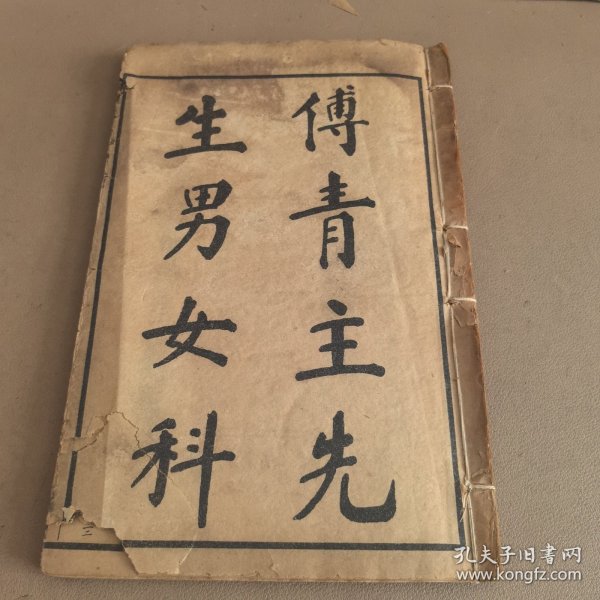 傅青主先
生男女科
三
孔夫子旧书网
www.kongfz.com